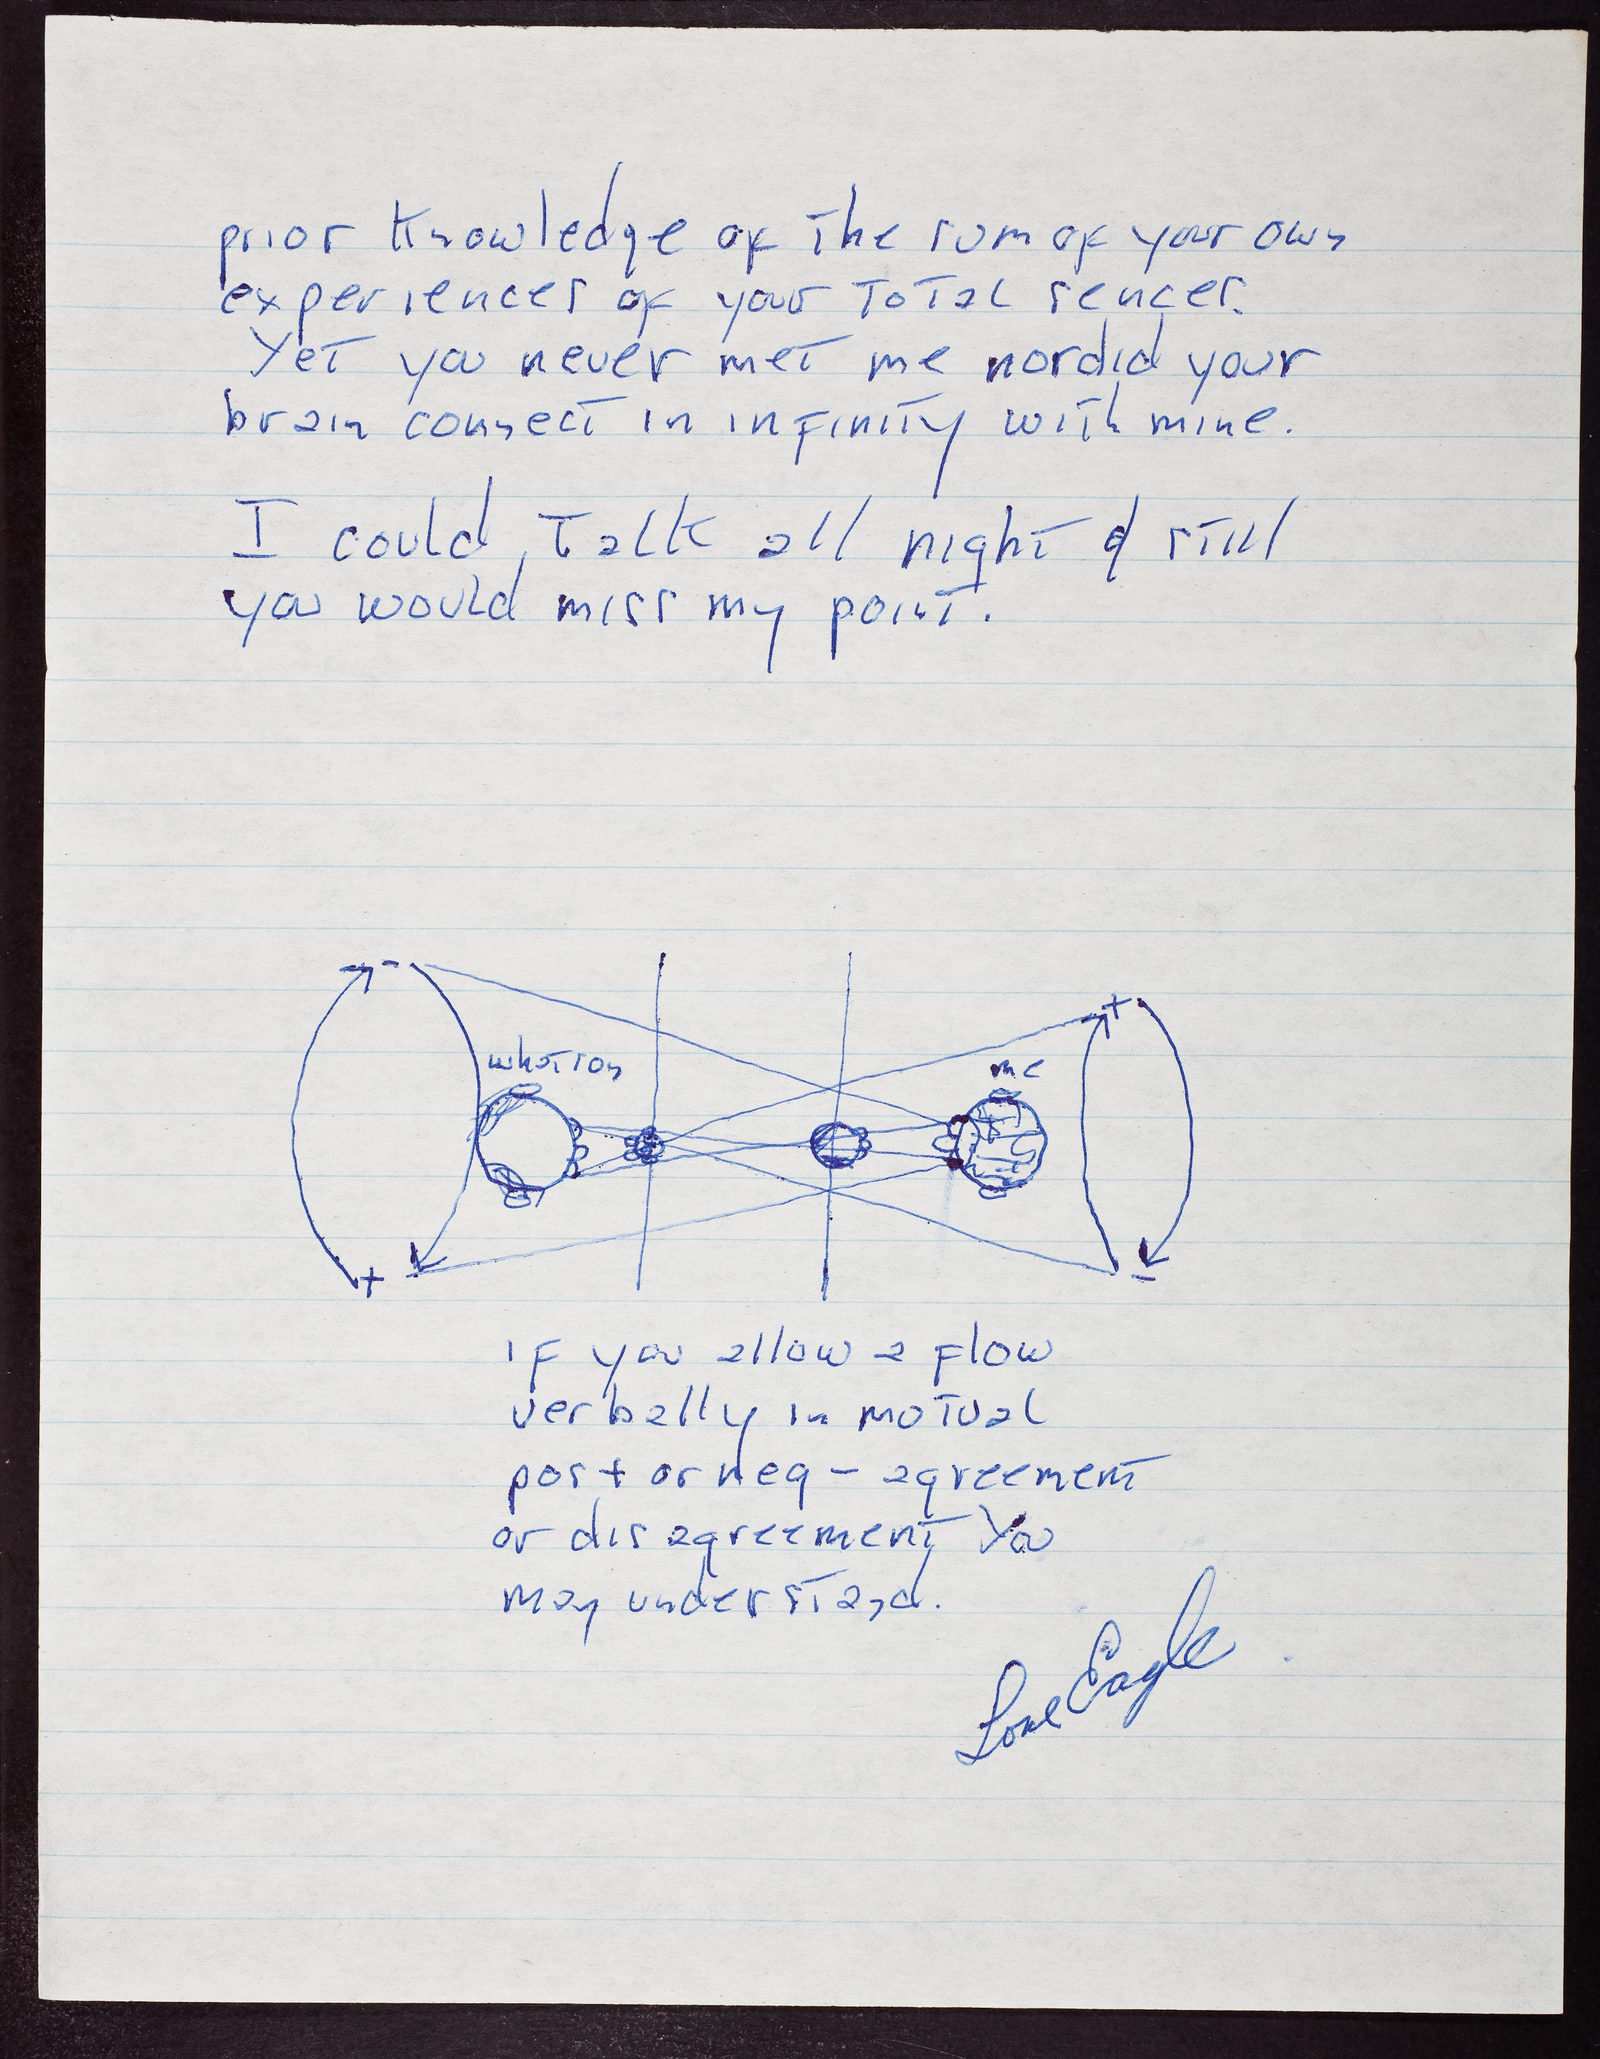 prior Knowledge of the sum of your own
experiences of your ToTal sences.
Yet you never met me nor did your
brain connect in infinity with mine.
I could Talk all night & still
you would miss my point.
- +
whatson me
+ - -
if you allow a flow
verbally in motual
pos + or neg - agreement
or disagreement You
may understand.
Lone Eagle